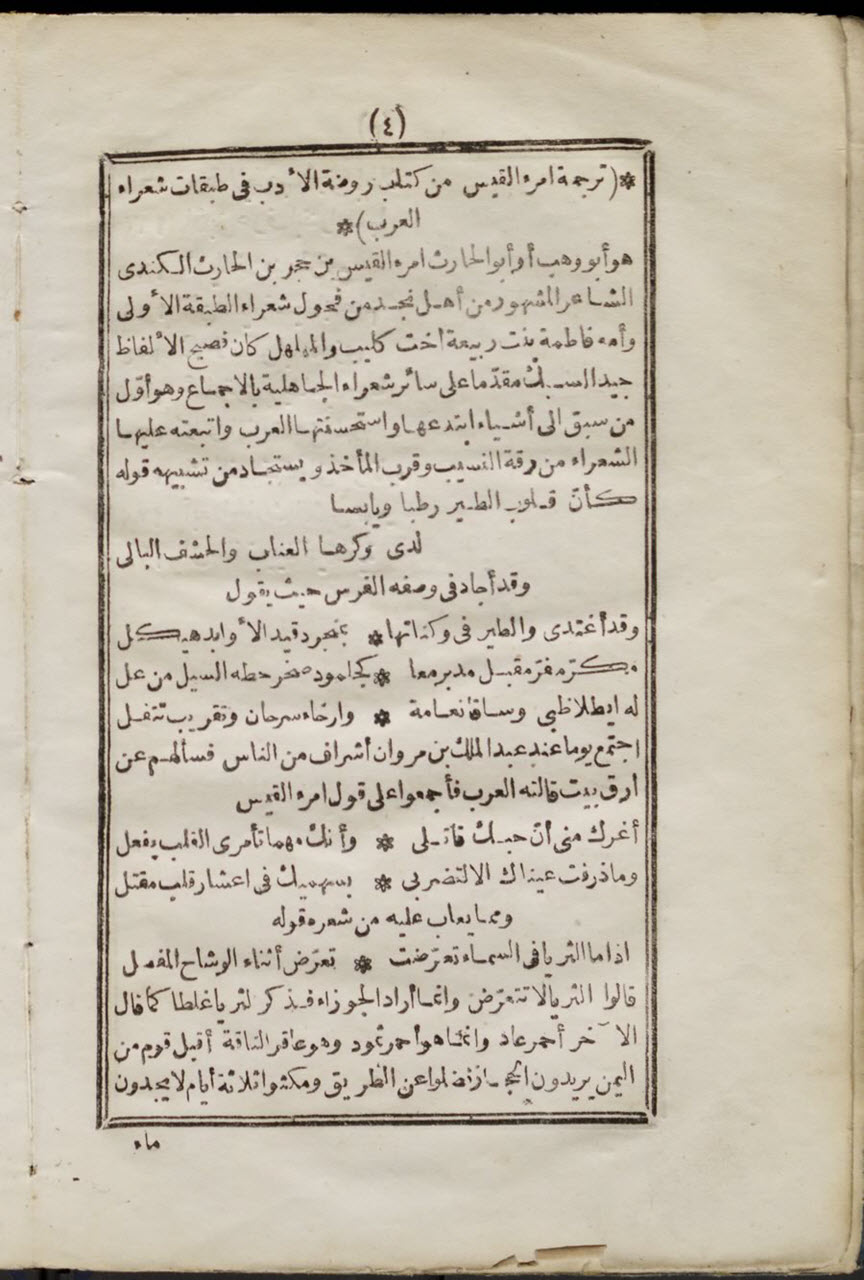 (٤)
*(ترجمة امرء القيس من كتاب روضة الأدب فى طبقات شعراء
العرب)*
هو أبو وهب أو أبو الحارث امرء القيس بن حجر بن الحارث الكندى
الشاعر المشهور من أهل نجد من فحول شعراء الطبقة الأولى
وأمه فاطمة بنت ربيعة اخت كليب والمهلهل كان فصيح الألفاظ
جيد السبك مقدّما على سائر شعراء الجاهلية بالاجماع وهو أوّل
من سبق الى أشياء ابتدعها واستحسنتها العرب واتبعته عليها
الشعراء من رقة النسيب وقرب المأخذ ويستجاد من تشبيهه قوله
كأنّ قلوب الطير رطبا ويابسا
لدى وكرها العناب والحشف البالى
وقد أجاد فى وصفه الفرس حيث يقول
وقد أغتدى والطير فى وكناتها * بمنجرد قيد الأوابد هيكل
مكرّ مفرّ مقبل مدبر معا * كجلمود صخر حطه السيل من عل
له ايطلا ظبى وساقا نعامة * وارخاء سرحان وتقريب تتفل
اجتمع يوما عند عبد الملك بن مروان أشراف من الناس فسألهم عن
ارق بيت قالته العرب فأجمعوا على قول امرء القيس
أغرك منى أنّ حبك قاتلى * وأنك مهما تأمرى القلب يفعل
وما ذرفت عيناك الا لتضربى * بسهميك فى اعشار قلب مقتل
ومما يعاب عليه من شعره قوله
اذا ما الثريا فى السماء تعرّضت * تعرّض أثناء الوشاح المفصل
قالوا الثريا لا تتعرّض وانما أراد الجوزاء فذكر لثريا غلطا كما قال
الآخر أحمر عاد وانما هو أحمر ثمود وهو عاقر الناقة أقبل قوم من
اليمن يريدون الحجاز فضلوا عن الطريق ومكثوا ثلاثة أيام لا يجدون
ماء